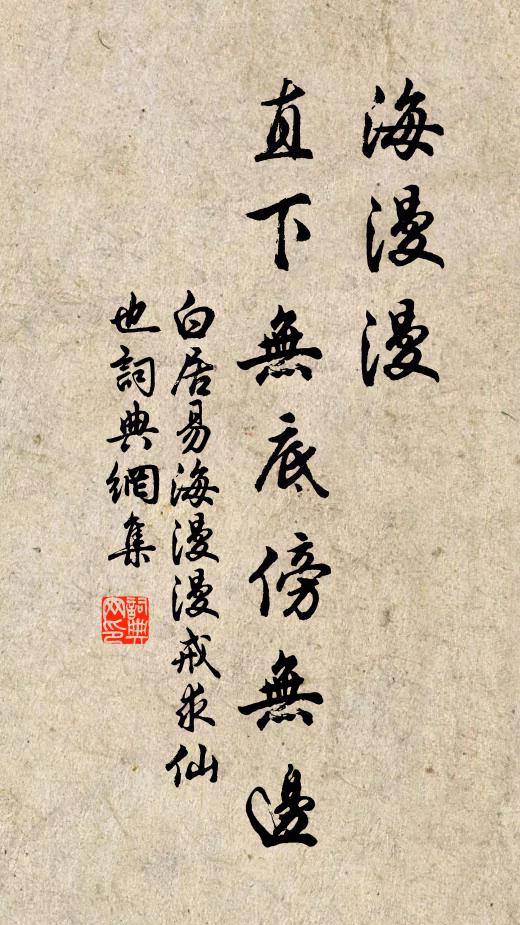 海漫漫
直下無底傍無邊
白居易海漫漫戒求仙
也詞典網集
詞典网印